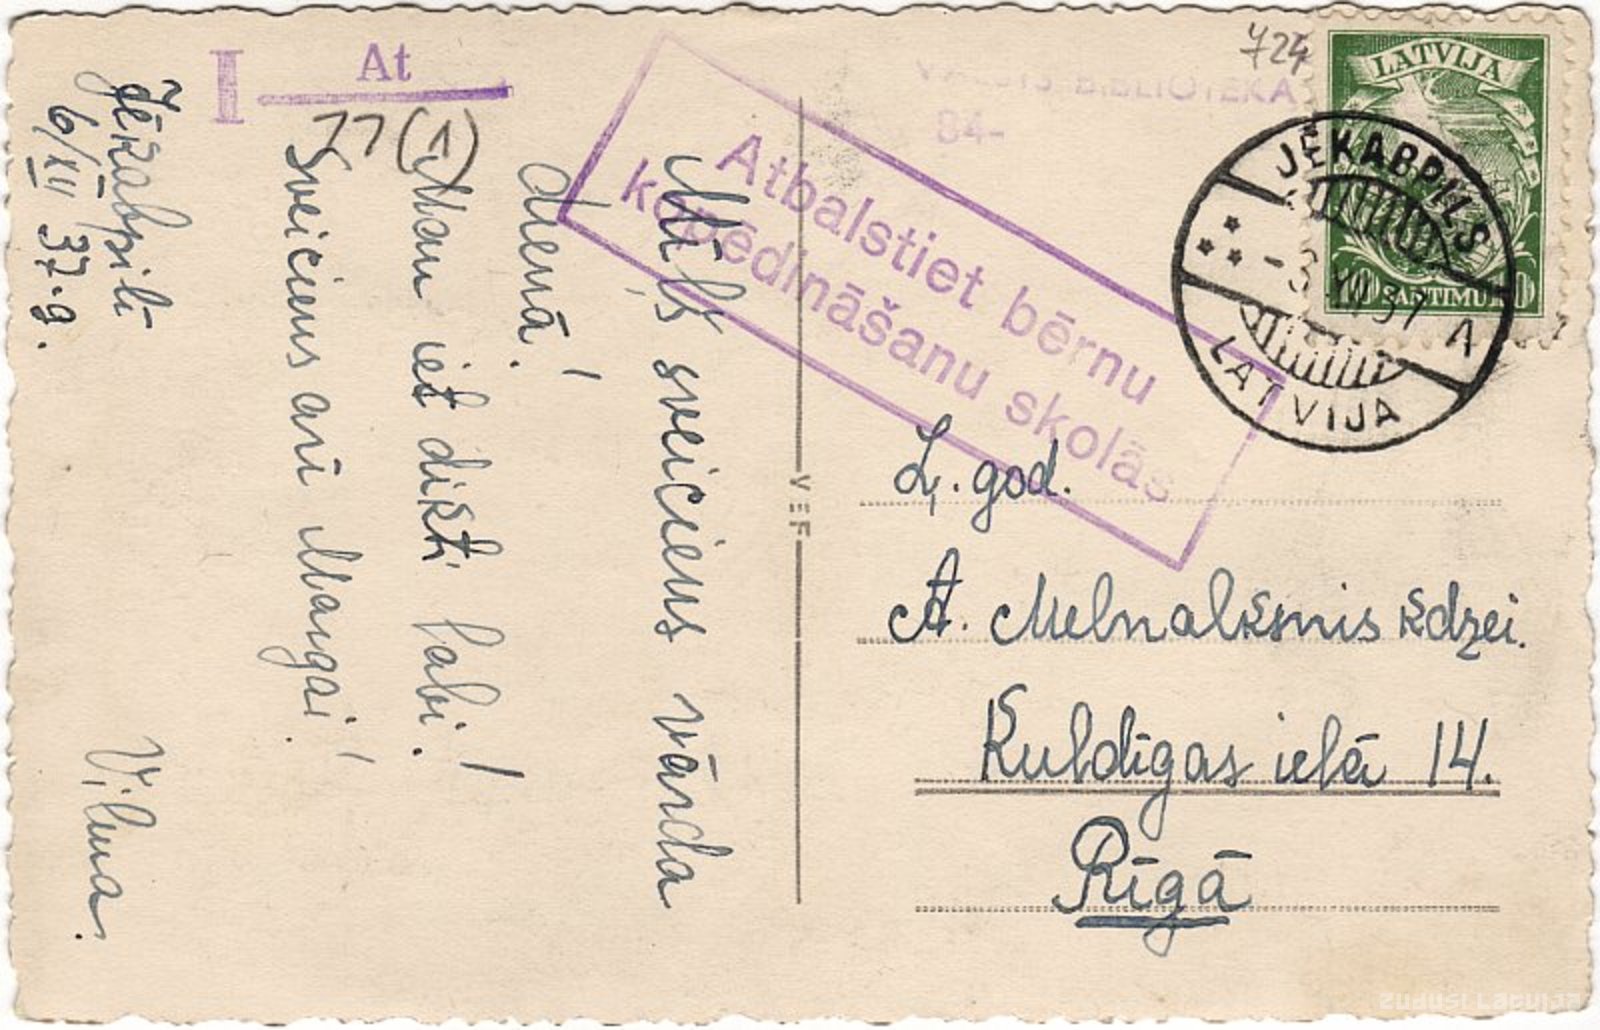 I At
11 (1)
Jēkabpilī
6/XII 37.g.
Mūļš sveiciens vārda
dienā!
Man iet dikti labi!
Sveiciens arī Mangai!
Vilma.
VEF
724
VALSTS BIBLIOTEKA
84-
Atbalstiet bērnu
kopēdināšanu skolās
LATVIJA
10 SANTIMU 10
JEKABPILS
- 3 XII 37 A
LATVIJA
Ļ. god.
A. Melnalksnis kdzei.
Kuldīgas ielā 14.
Rīgā
zudusi Latvija